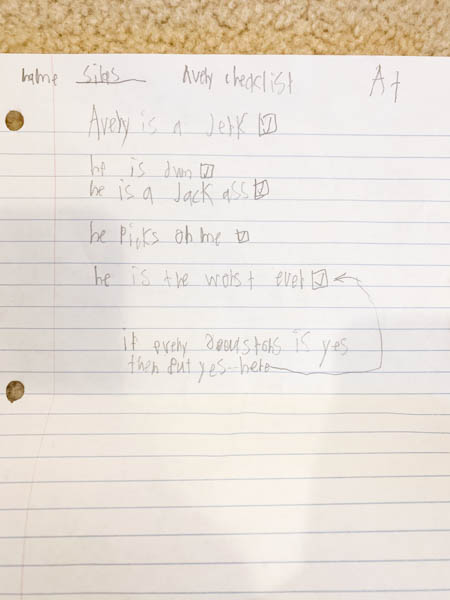 name Silas Avery checklist A+
Avery is a Jerk
he is dum
he is a Jack ass
he Picks on me
he is the worst ever
if every is yes
then put yes here